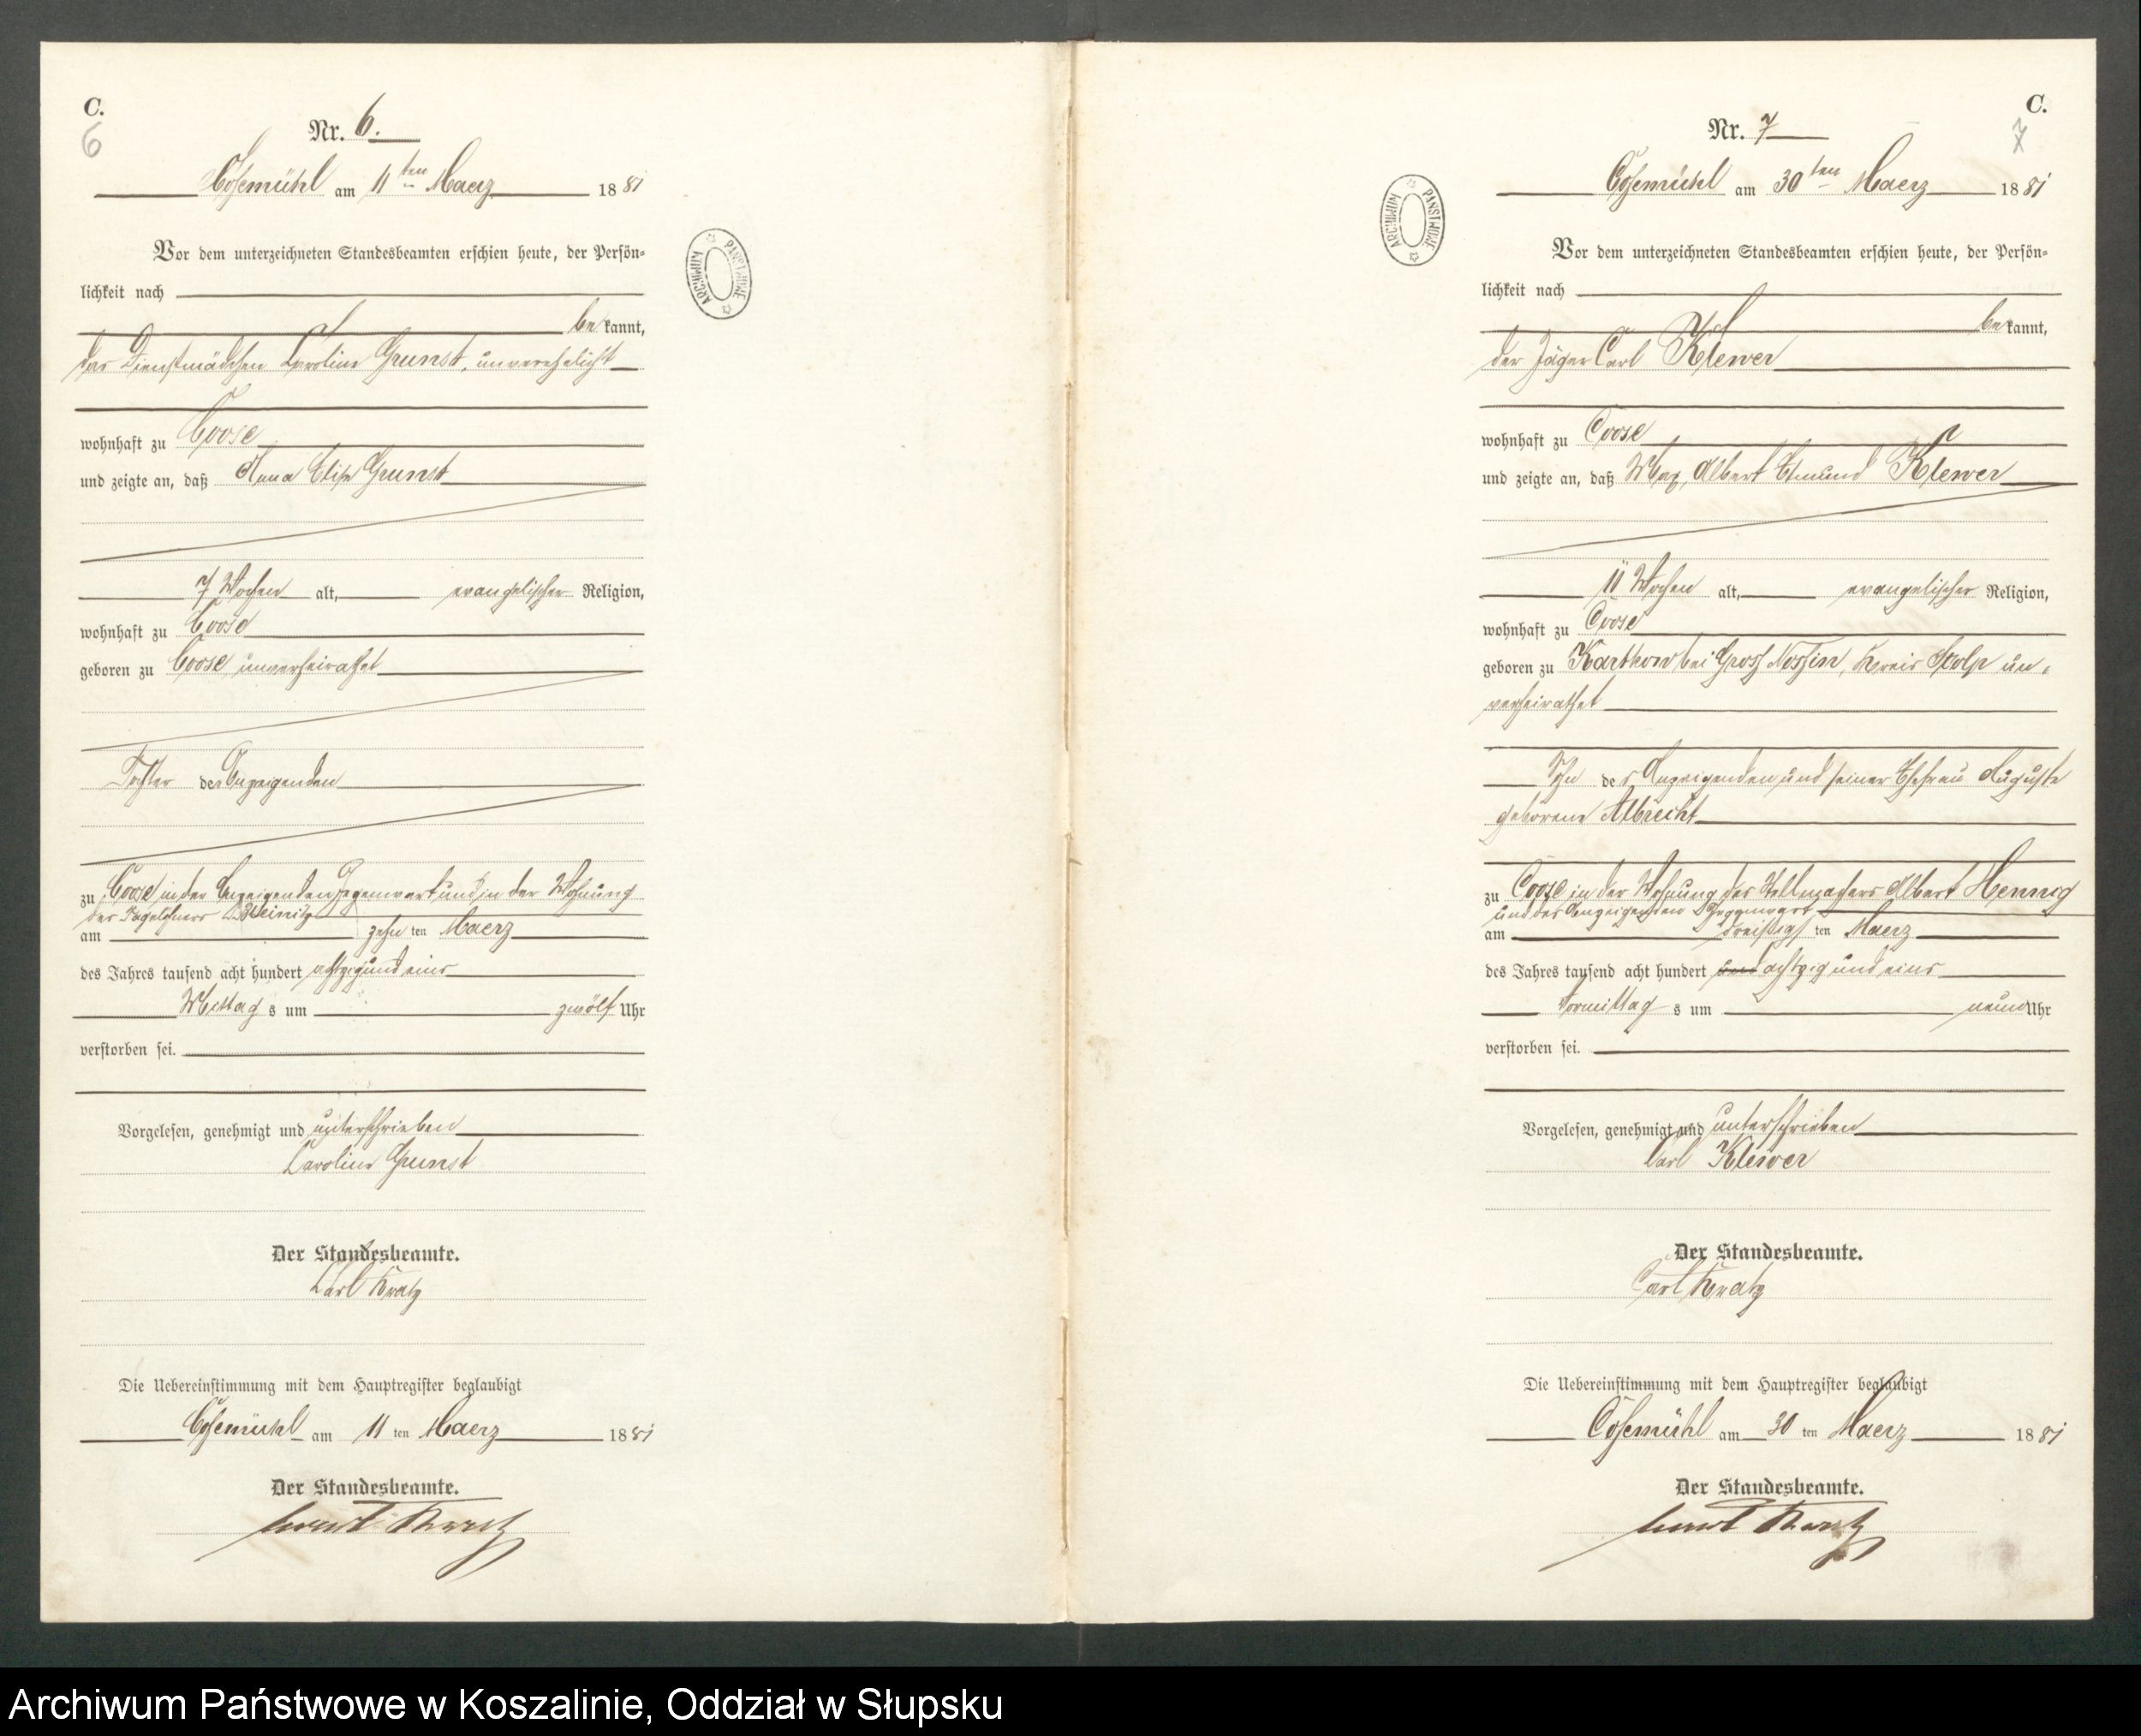 C.
6
Nr. 6.
Cosemühl am 11ten Maerz 1881
Vor dem unterzeichneten Standesbeamten erschien heute, der Persön-
lichkeit nach
bekannt,
das Dienstmädchen Caroline Grunst, unverehelicht
wohnhaft zu Coose
und zeigte an, daß Anna Elise Grunst
7 Wochen alt, evangelischer Religion,
wohnhaft zu Coose
geboren zu Coose, unverheirathet
Tochter der Anzeigenden
zu Coose in der Anzeigenden Gegenwart und in der Wohnung
des Tagelöhners
am zehnten Maerz
des Jahres tausend acht hundert achtzig und eins
Mittags um zwölf Uhr
verstorben sei.
Vorgelesen, genehmigt und unterschrieben
Caroline Grunst
Der Standesbeamte.
Carl Kratz
Die Uebereinstimmung mit dem Hauptregister beglaubigt
Cosemühl am 11ten Maerz 1881
Der Standesbeamte.
Carl Kratz
ARCHIWUM PAŃSTWOWE
C.
7
Nr. 7
Cosemühl am 30ten Maerz 1881
Vor dem unterzeichneten Standesbeamten erschien heute, der Persön-
lichkeit nach
bekannt,
der Jäger Carl Klewer
wohnhaft zu Coose
und zeigte an, daß Max, Albert Klewer
11 Wochen alt, evangelischer Religion,
wohnhaft zu Coose
geboren zu Kartkow bei Gross Nossin, Kreis Stolp un-
verheirathet
Sohn des Anzeigenden und seiner Ehefrau Auguste
geborene Albrecht
zu Coose in der Wohnung des Stellmachers Albert Hennig
und des Anzeigenden Gegenwart
am dreißigsten Maerz
des Jahres tausend acht hundert achtzig und eins
Vormittags um neun Uhr
verstorben sei.
Vorgelesen, genehmigt und unterschrieben
Carl Klewer
Der Standesbeamte.
Carl Kratz
Die Uebereinstimmung mit dem Hauptregister beglaubigt
Cosemühl am 30ten Maerz 1881
Der Standesbeamte.
Carl Kratz
ARCHIWUM PAŃSTWOWE
Archiwum Państwowe w Koszalinie, Oddział w Słupsku